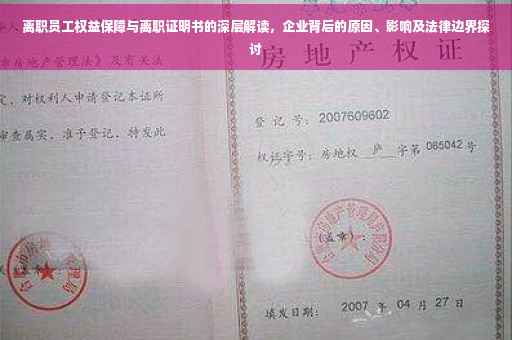 离职员工权益保障与离职证明书的深层解读，企业背后的原因、影响及法律边界探
讨
房地产权证
市房地产管理法》及有关法
定，对权利人申请登记本证所
审查属实，准予登记，特发此
登记号：2007609602
权证字号：房地权 庐 字第 085042 号
（盖章）：
填发日期：2007 年 04 月 27 日